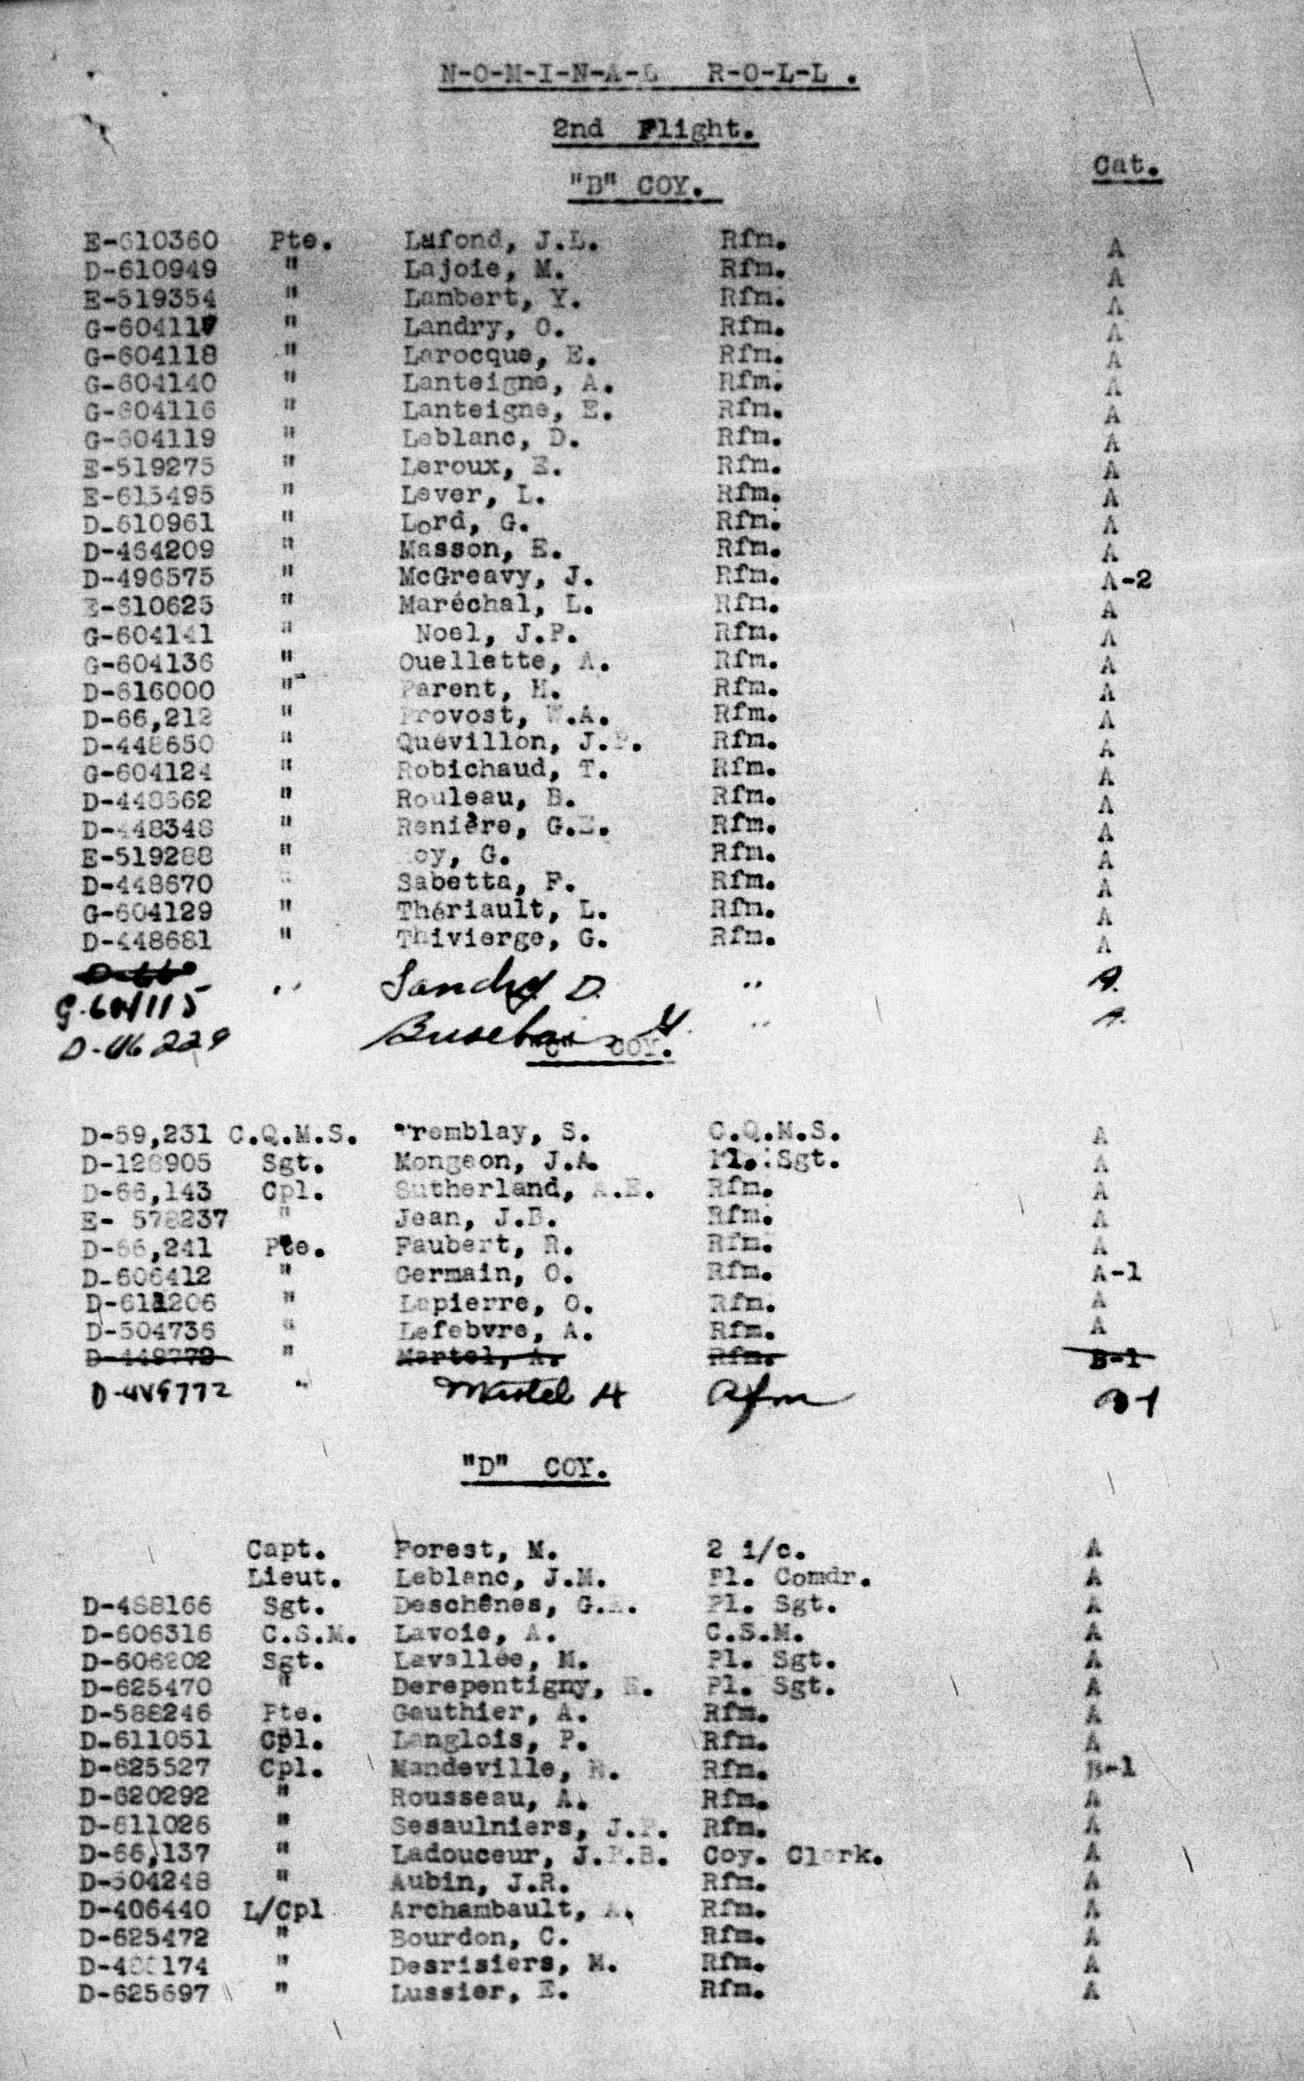 N-O-M-I-N-A-L R-O-L-L .
2nd Flight.
Cat.
"B" COY.
E-610360 Pte. Lafond, J.L. Rfm. A
D-610949 " Lajoie, M. Rfm. A
E-519354 " Lambert, Y. Rfm. A
G-604117 " Landry, O. Rfm. A
G-604118 " Larocque, E. Rfm. A
G-604140 " Lanteigne, A. Rfm. A
G-604116 " Lanteigne, E. Rfm. A
G-604119 " Leblanc, D. Rfm. A
E-519275 " Leroux, E. Rfm. A
E-615495 " Lever, L. Rfm. A
D-610961 " Lord, G. Rfm. A
D-464209 " Masson, E. Rfm. A
D-496575 " McGreavy, J. Rfm. A-2
E-610625 " Maréchal, L. Rfm. A
G-604141 " Noel, J.P. Rfm. A
G-604136 " Ouellette, A. Rfm. A
D-616000 " Parent, H. Rfm. A
D-66,212 " Provost, W.A. Rfm. A
D-448650 " Quévillon, J.P. Rfm. A
G-604124 " Robichaud, T. Rfm. A
D-448662 " Rouleau, B. Rfm. A
D-448348 " Renière, G.E. Rfm. A
E-519288 " Roy, G. Rfm. A
D-448670 " Sabetta, F. Rfm. A
G-604129 " Thériault, L. Rfm. A
D-448681 " Thivierge, G. Rfm. A
D-660
G-604115 " Landry D. " A.
D-46229 G. " A.
"C" COY.
D-59,231 C.Q.M.S. Tremblay, S. C.Q.M.S. A
D-128905 Sgt. Mongeon, J.A. Pl. Sgt. A
D-66,143 Cpl. Sutherland, A.E. Rfm. A
E- 578237 " Jean, J.B. Rfm. A
D-66,241 Pte. Faubert, R. Rfm. A
D-606412 " Germain, O. Rfm. A-1
D-611206 " Lapierre, O. Rfm. A
D-504736 " Lefebvre, A. Rfm. A
D-449772 " Martel, A. Rfm. B-1
D-449772 " Martel H Rfm B-1
"D" COY.
Capt. Forest, M. 2 i/c. A
Lieut. Leblanc, J.M. Pl. Comdr. A
D-488166 Sgt. Deschênes, G. Pl. Sgt. A
D-606316 C.S.M. Lavoie, A. C.S.M. A
D-606202 Sgt. Lavallée, M. Pl. Sgt. A
D-625470 " Derepentigny, R. Pl. Sgt. A
D-588246 Pte. Gauthier, A. Rfm. A
D-611051 Cpl. Langlois, P. Rfm. A
D-625527 Cpl. Mandeville, R. Rfm. B-1
D-620292 " Rousseau, A. Rfm. A
D-611026 " Sesaulniers, J.P. Rfm. A
D-66,137 " Ladouceur, J.P.B. Coy. Clerk. A
D-504248 " Aubin, J.R. Rfm. A
D-406440 L/Cpl Archambault, A. Rfm. A
D-625472 " Bourdon, C. Rfm. A
" Desrisiers, M. Rfm. A
D-625697 " Lussier, E. Rfm. A